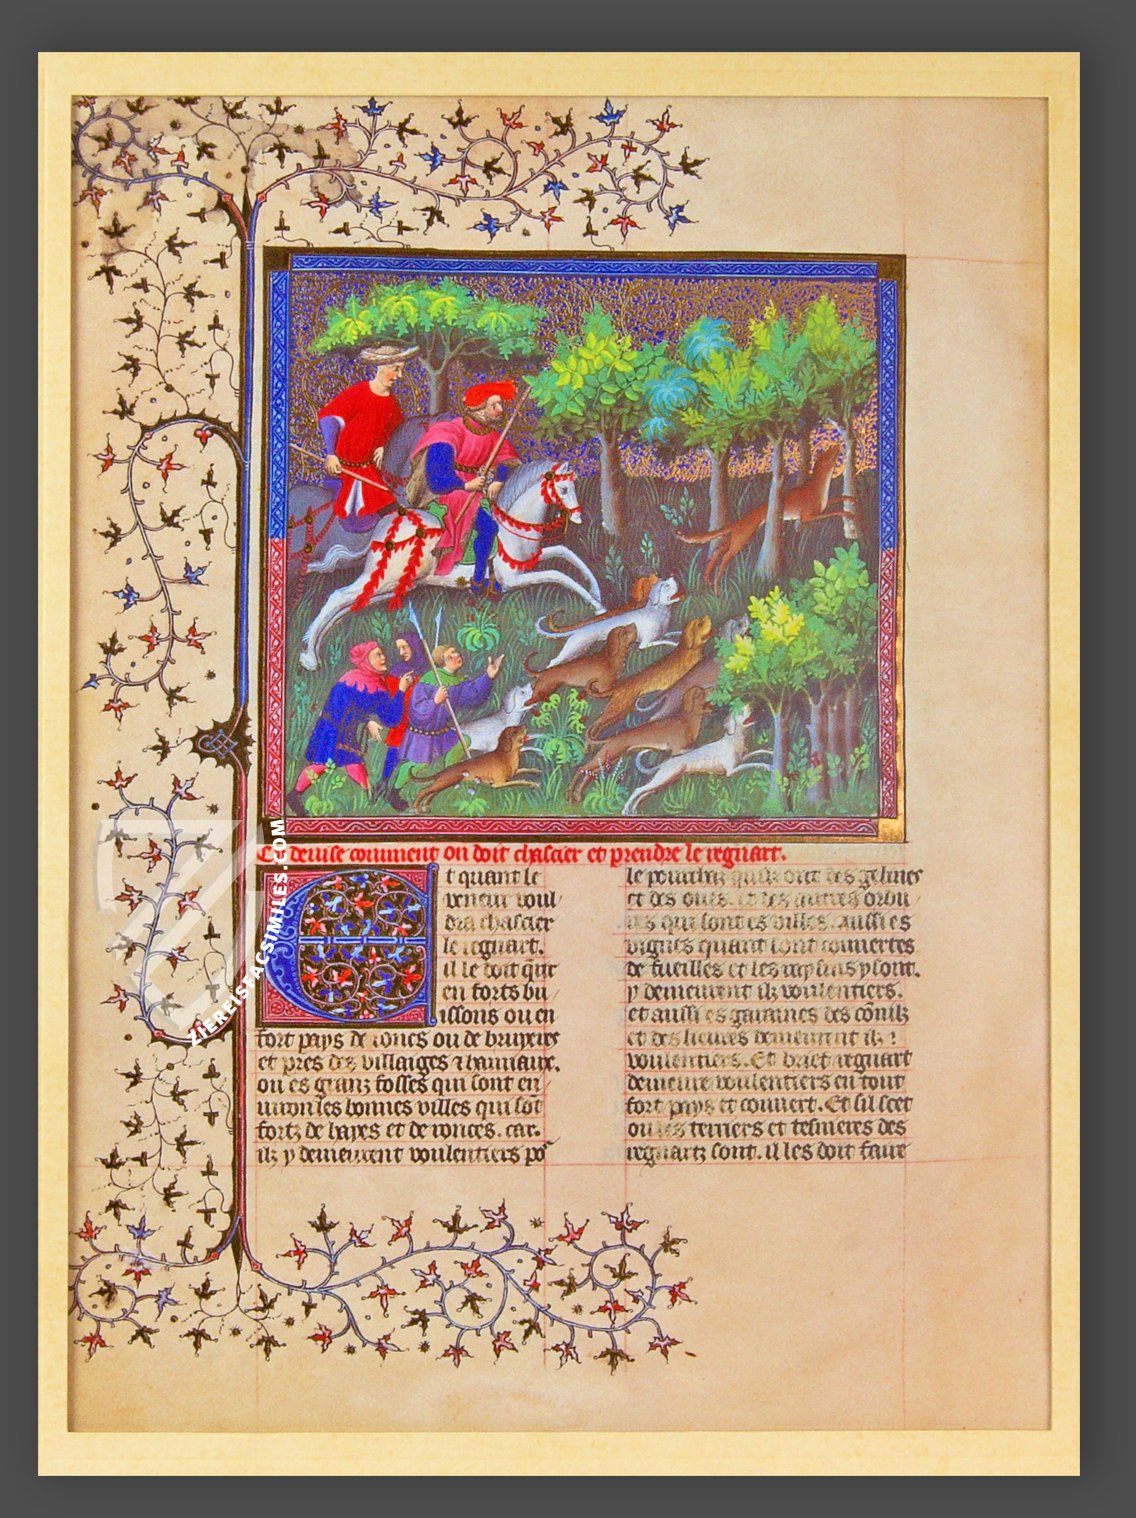 Cy deuise comment on doit chascier et prendre le regnart.
Et quant le
veneur voul
dra chascier
le regnart.
il le doit q̃rir
en forts bu
issons ou en
fort pays de ronces ou de bruyeres
et pres des villaiges et hamiaux.
ou es granz fosses qui sont en
uiron les bonnes villes qui sõt
fortz de hayes et de ronces. car.
ilz y demeurent voulentiers po
le pourchaz quilz ont des gelines
et des oues. et des autres ordu
res qui sont es villes. aussi es
vignes quant sont couuertes
de fueilles et les raysins y sont.
y demeurent ilz voulentiers.
et aussi es garannes des conilz
et des lieures demeurent ilz
voulentiers. Et brief regnart
demeure voulentiers en tout
fort pays et couuert. Et sil scet
ou les terriers et tesnieres des
regnartz sont. il les doit faire
ZIEREISFACSIMILES.COM